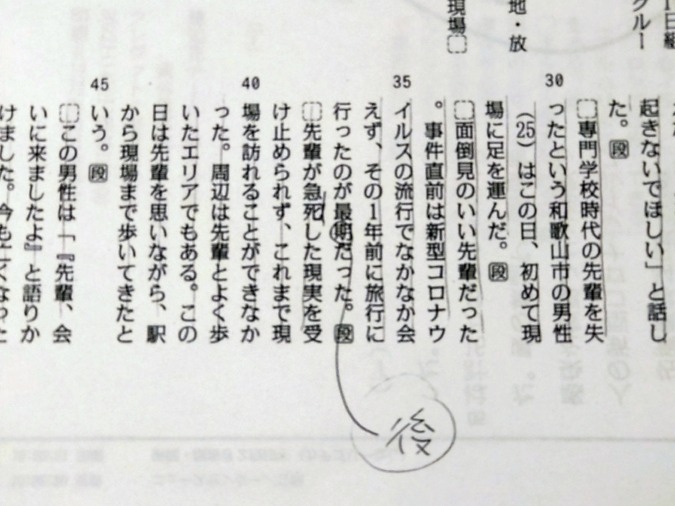 グルー
地・放
現場
起きないでほしい」と話し
た。段
30
専門学校時代の先輩を失
ったという和歌山市の男性
（25）はこの日、初めて現
場に足を運んだ。段
面倒見のいい先輩だった
。事件直前は新型コロナウ
35
イルスの流行でなかなか会
えず、その1年前に旅行に
行ったのが最期だった。段
後
先輩が急死した現実を受
け止められず、これまで現
40
場を訪れることができなか
った。周辺は先輩とよく歩
いたエリアでもある。この
日は先輩を思いながら、駅
から現場まで歩いてきたと
45
いう。段
この男性は「『先輩、会
いに来ましたよ』と語りか
けました。今も亡くなった